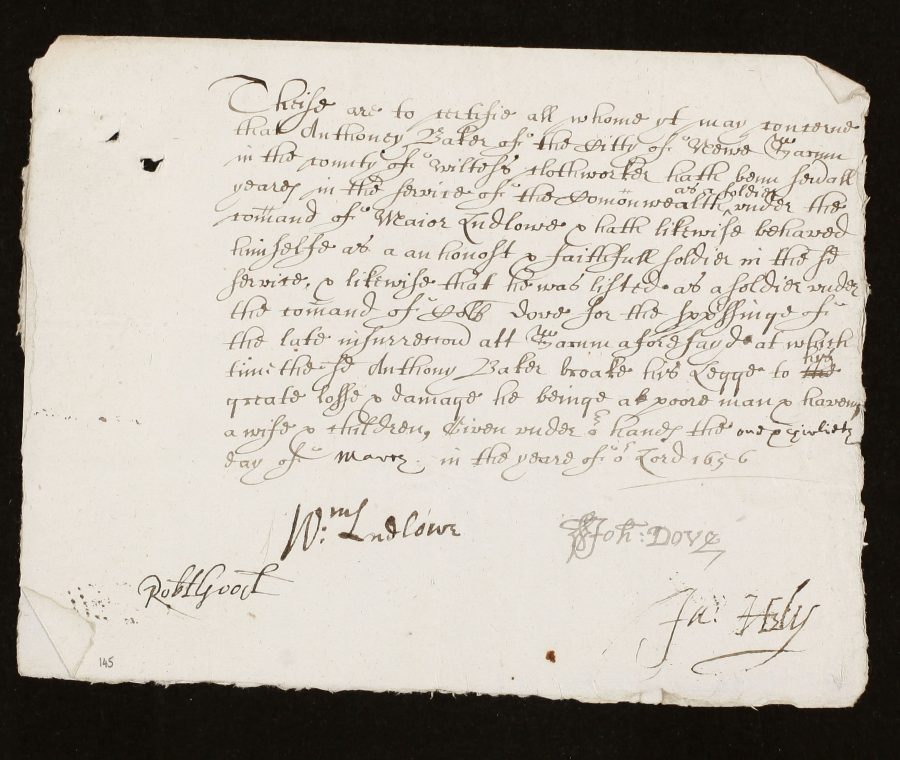 Theise are to certifie all whome yt may concerne
that Anthoney Baker of the Citty of Newe Sarum
in the county of Wiltess clothworker hath benn sevall
yeares in the service of the Comonwealth as a soldier under the
comand of Maior Ludlowe & hath likewise behaved
himselfe as a an honost & faithfull soldier in the sd
service, & likewise that he was listed as a soldier under
the comand of Coll Dove for the supssinge of
the late insurrecon att Sarum aforesayde at which
time the sd Anthony Baker broake his Legge to the his
greate losse & damage he beinge a poore man & haveng
a wife & children, Given under or hands the one &
day of March in the yeare of or Lord 1656
Wm Ludlowe
Joh: Dove
Robt Good
Ja: Hely
145